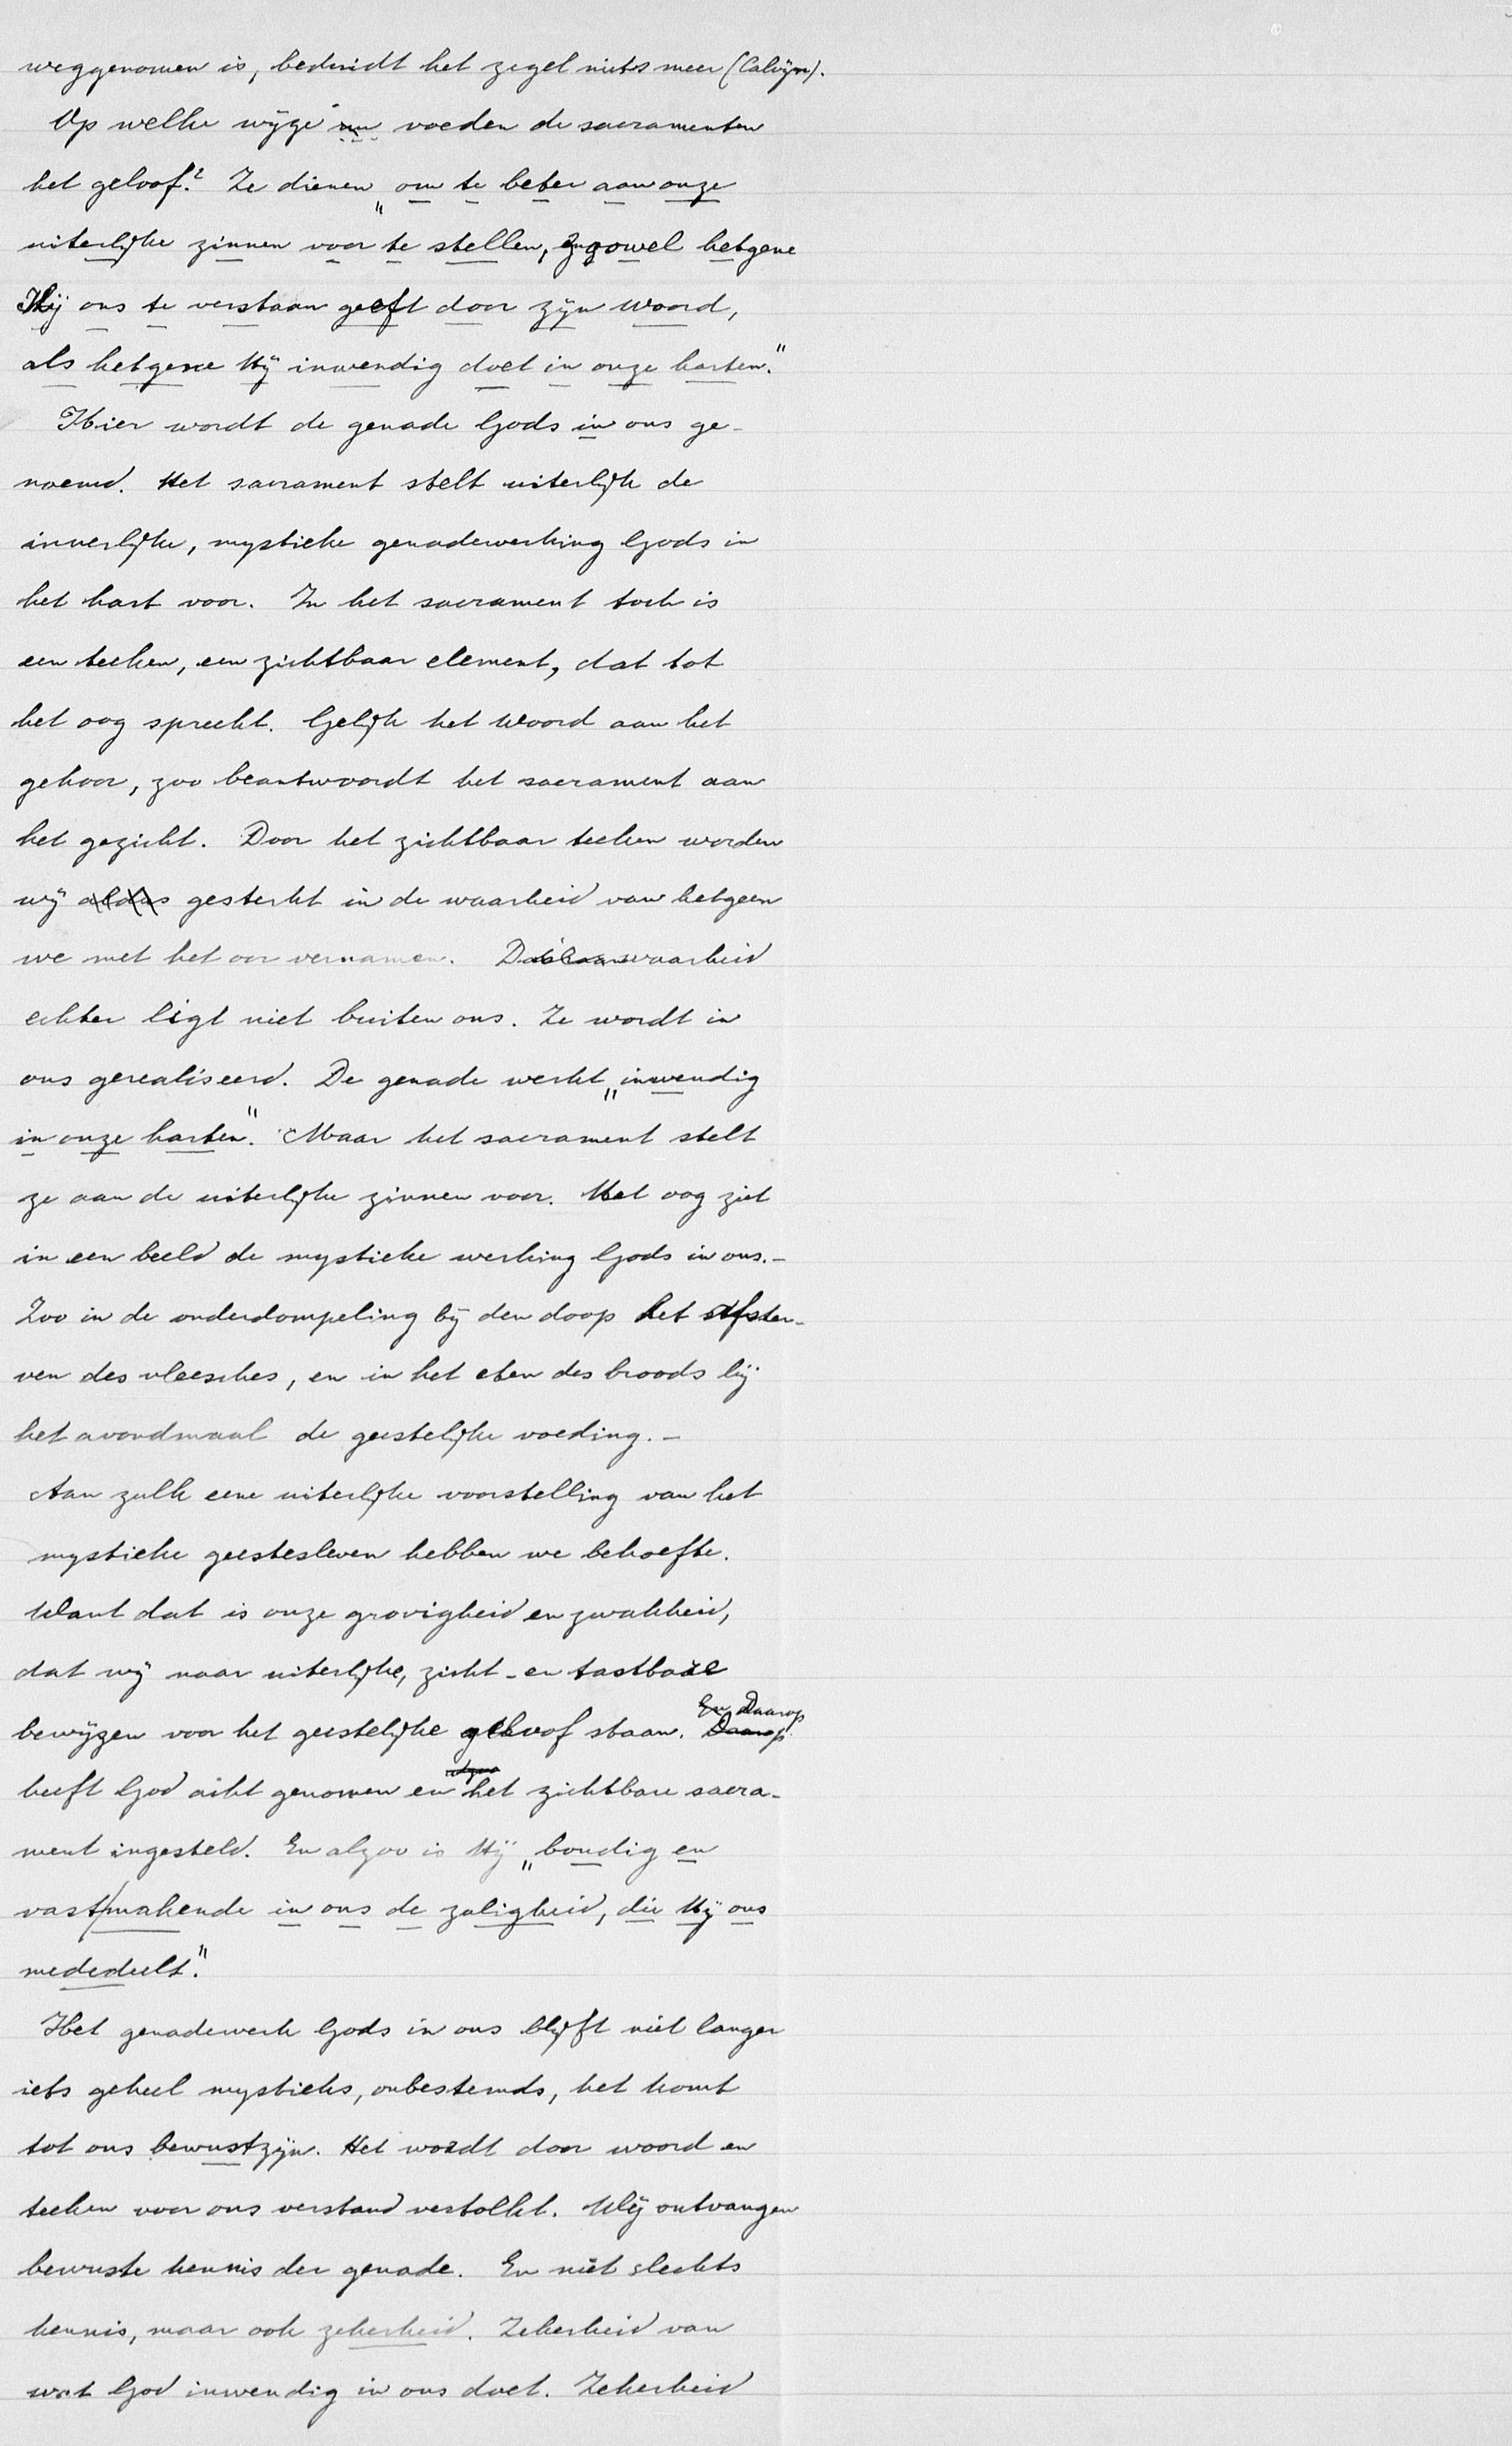 weggenomen is, beduidt het zegel niets meer (Calvijn).
Op welke wijze nu voeden de sacramenten
het geloof? Ze dienen „om te beter aan onze
uiterlijke zinnen voor te stellen, zoowel hetgene
Hij ons te verstaan geeft door zijn Woord,
als hetgene Hij inwendig doet in onze harten."
Hier wordt de genade Gods in ons ge-
noemd. Het sacrament stelt uiterlijk de
innerlijke, mystieke genadewerking Gods in
het hart voor. In het sacrament toch is
een teeken, een zichtbaar element, dat tot
het oog spreekt. Gelijk het Woord aan het
gehoor, zoo beantwoordt het sacrament aan
het gezicht. Door het zichtbaar teeken worden
wij aldus gesterkt in de waarheid van hetgeen
we met het oor vernamen. waarheid
echter ligt niet buiten ons. Ze wordt in
ons gerealiseerd. De genade werkt „inwendig
in onze harten." Maar het sacrament stelt
ze aan de uiterlijke zinnen voor. Het oog ziet
in een beeld de mystieke werking Gods in ons.-
Zoo in de onderdompeling bij den doop het afster-
ven des vleesches, en in het eten des broods bij
het avondmaal de geestelijke voeding.-
Aan zulk eene uiterlijke voorstelling van het
mystieke geestesleven hebben we behoefte.
Want dat is onze grovigheid en zwakheid,
dat wij naar uiterlijke, zicht- en tastbare
En Daarop
bewijzen voor het geestelijke geloof staan. Daarop
heeft God acht genomen en het zichtbare sacra-
ment ingesteld. En alzoo is Hij „bondig en
vastmakende in ons de zaligheid, die Hij ons
mededeelt."
Het genadewerk Gods in ons blijft niet langer
iets geheel mystieks, onbestemds, het komt
tot ons bewustzijn. Het wordt door woord en
teeken voor ons verstand vertolkt. Wij ontvangen
bewuste kennis der genade. En niet slechts
kennis, maar ook zekerheid. Zekerheid van
wat God inwendig in ons doet. Zekerheid